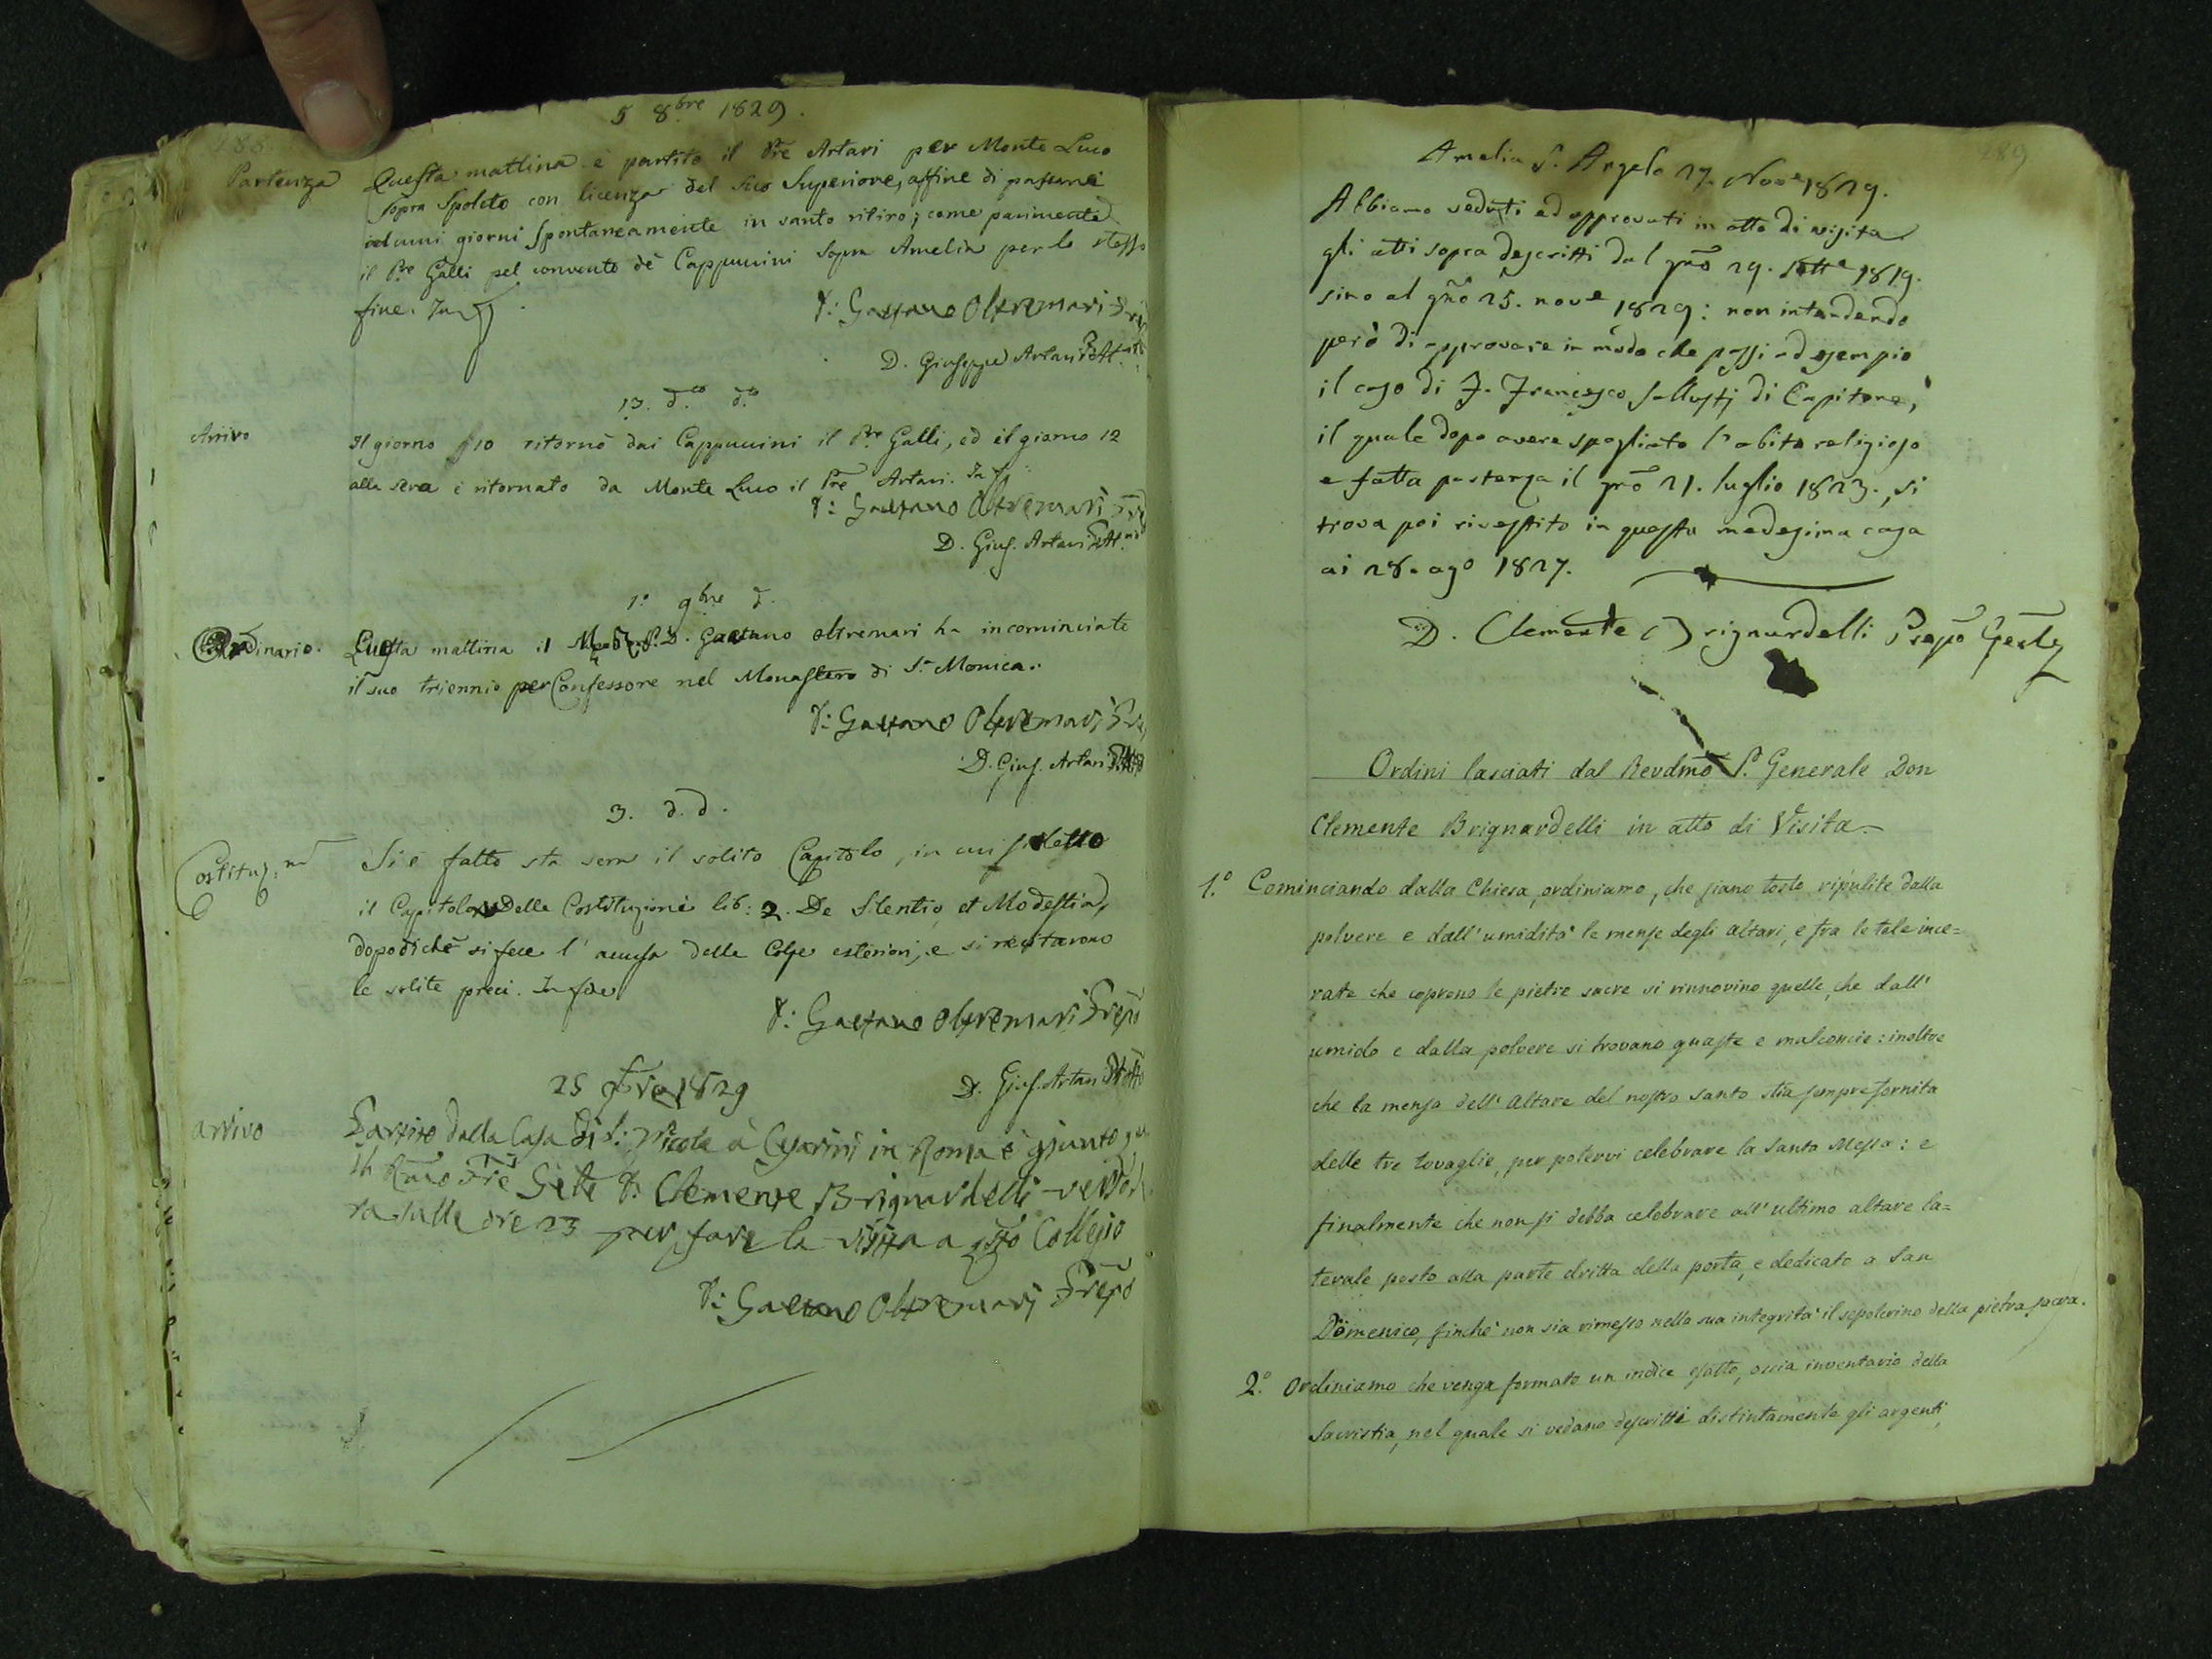 188
5 8bre 1829.
Partenza
Questa mattina è partito il Pre Artari per Monte Luco
sopra Spoleto con licenza del suo Superiore, affine di passarvi
alcuni giorni spontaneamente in santo ritiro; come parimente
il Pre Galli pel convento dè Cappuccini sopra Amelia per lo stesso
fine. In
D: Gaetano Oltremari
D. Giuseppe Artari
13. d.to d.to
Arrivo
Il giorno 10 ritornò dai Cappuccini il Pre Galli, ed il giorno 12
alla sera è ritornato da Monte Luco il Pre Artari. In
D: Gaetano Oltremari
D. Gius. Artari
1° 9bre d.
Ordinario.
Questa mattina il D. Gaetano Oltremari ha incominciato
il suo triennio per Confessore nel Monastero di S. Monica.
D: Gaetano Oltremari
D. Gius. Artari
3. d. d.
Costituz.ni
Si è fatto sta sera il solito Capitolo, in cui si è letto
il Capitolo Delle Costituzioni lib: 2. De Silentio, et Modestia,
dopodichè si fece l'accusa delle Colpe esteriori, e si recitarono
le solite preci. In fede
D: Gaetano Oltremari Prepo
D. Gius. Artari
25 9bre 1829
arrivo
Partito dalla Casa di S: Nicola à Cesarini in Roma è giunto
Il Rmo Pre Gnle D: Clemente Brignardelli verso
ra sulle ore 23 per fare la visita a qsto Collegio
D: Gaetano Oltremari Prepo
189
Amelia S. Angelo 27. Nove 1829.
Abbiamo veduti ed approvati in atto di visita
gli atti sopra descritti dal gno 29. Sette 1819.
sino al gno 25. nove 1829: non intendendo
però di approvare in modo che passi ad esempio
il caso di F. Francesco Sallustj di Capitone,
il quale dopo avere spogliato l'abito religioso
e fatta partenza il gno 21. luglio 1823., si
trova poi rivestito in questa medesima casa
ai 28. ago 1827.
D. Clemente Brignardelli Prepo Genle
Ordini lasciati dal Revdmo P. Generale Don
Clemente Brignardelli in atto di Visita.
1.° Cominciando dalla Chiesa, ordiniamo, che siano tosto ripulite dalla
polvere e dall'umidità le mense degli altari, e fra le tele ince=
rate che coprono le pietre sacre si rinnovino quelle, che dall'
umido e dalla polvere si trovano guaste e malconcie: inoltre
che la mensa dell'Altare del nostro Santo stia sempre fornita
delle tre tovaglie, per potervi celebrare la Santa Messa: e
finalmente che non si debba celebrare all'ultimo altare la=
terale posto alla parte dritta della porta, e dedicato a San
Domenico, finchè non sia rimesso nella sua integrità il sepolcrino della pietra sacra.
2.° Ordiniamo che venga formato un indice esatto, ossia inventario della
Sacristia, nel quale si vedano descritti distintamente gli argenti,